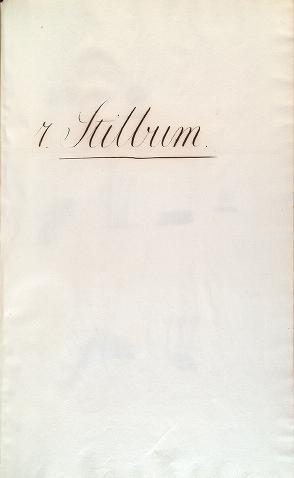 r. Stilbum.